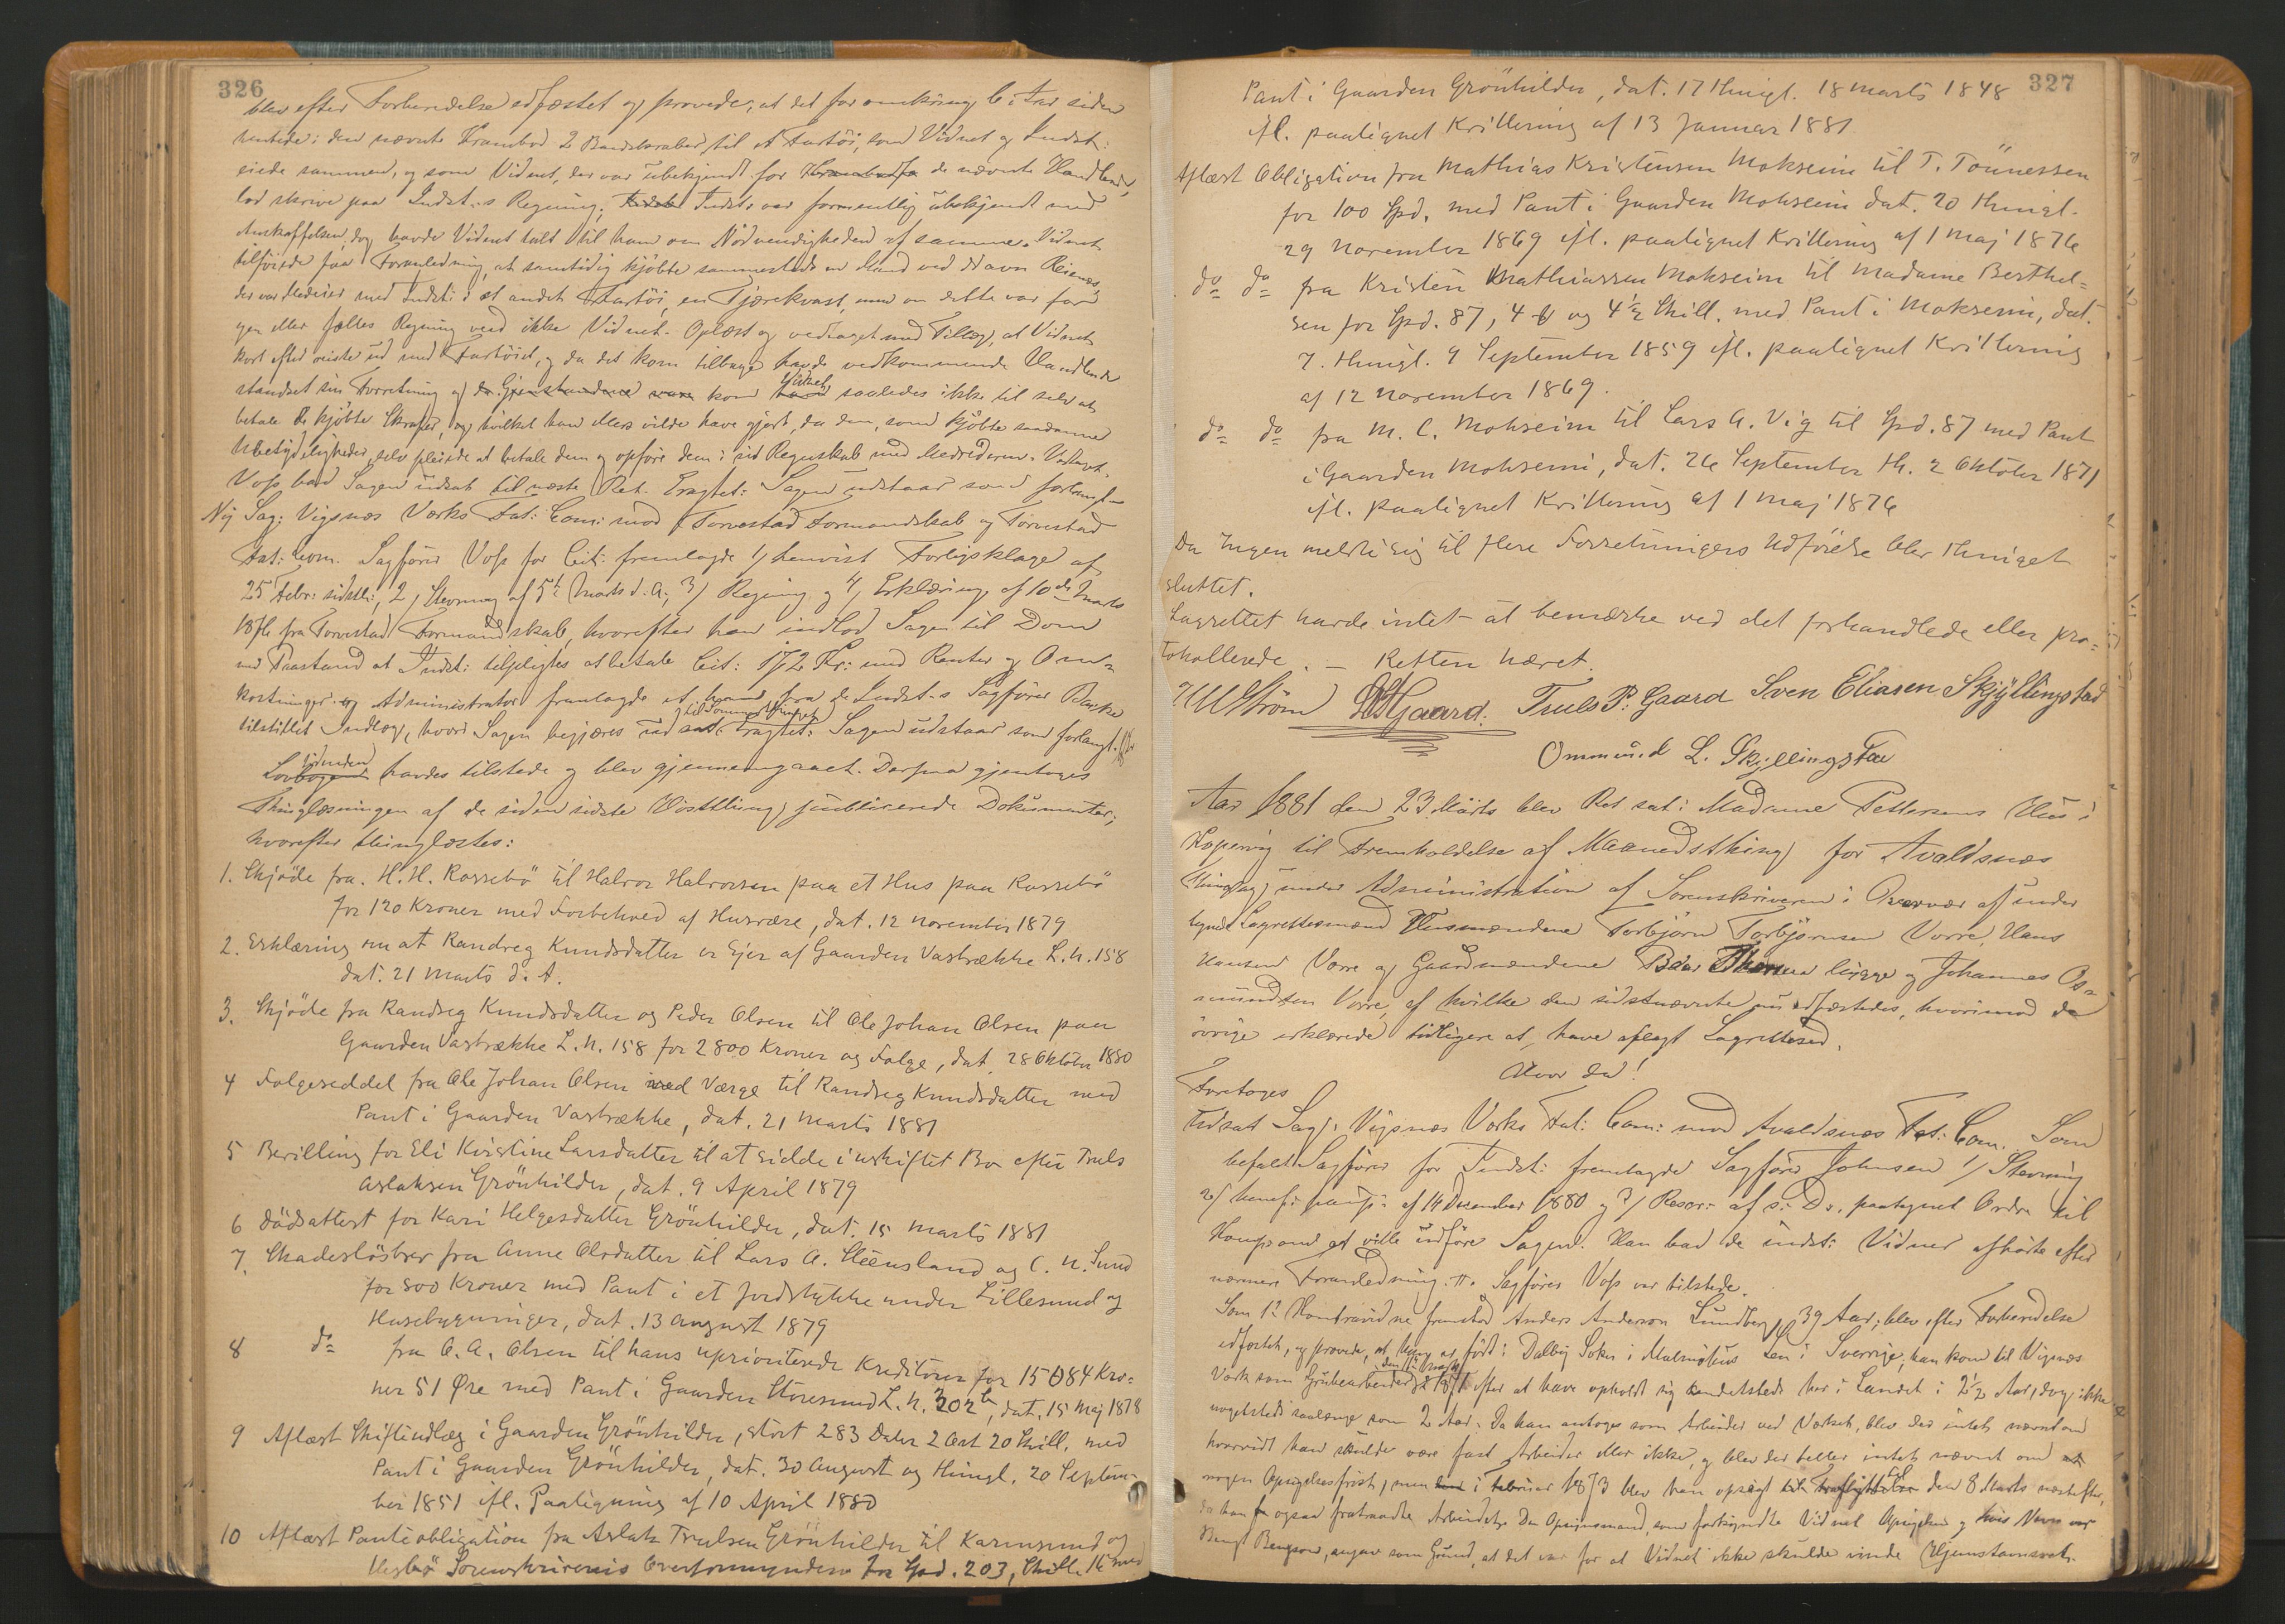 326
blev efter Forberedelse edfæstet og provede, at det for omkring 6 i Aar siden
hentede i den nævnte Krambod 2 Baadskraber til et Fartöi, som Vidnet og Indst:
eiede sammen, og som Vidnet, der var ubekjendt for de nævnte Handlende,
lod skrive paa Indst:s Regning; Indst: var formentlig ubekjendt med
Anskaffelsen, dog havde Vidnet talt til ham om Nödvendigheden af samme. Vidnet
tilföiede paa Foranledning, at samtidig kjöbte sammesteds en Mand ved Navn
der var Medeier med Indst: i et andet Fartöi, en Tjærekvast, men om dette var for
gen eller fælles Regning ved ikke Vidnet. Oplæst og vedtaget med Tillæg, at Vidnet
kort efter reiste ud med Fartöiet, og da det kom tilbage havde vedkommende Handlende
standset sin Forretning og da Gjenstandene vare kom Vidnet saaledes ikke til selv at
betale de kjöbte Skraber, og hvilket han ellers vilde have gjort, da den, som kjöbte saadanne
Ubetydeligheder, selv pleiede at betale dem og opföre dem i sit Regnskab med Medrederen.
Voss bad Sagen udsat til næste Ret. Eragtet: Sagen udstaar som forlangt.
Ny Sag: Vigsnæs Værks Fat: Com: mod Torvestad Formandskab og Torvestad
Fat: Com. Sagförer Voss for Cit: fremlagde 1/ henvist Forligsklage af
25 Febr: sidstl:, 2/ Stevning af 5te Marts d. A., 3/ Regning og 4/ Erklæring af 10de Marts
1876 fra Torvestad Formandskab, hvorefter han indlod Sagen til Dom
med Paastand at Indst: tilpligtes at betale Cit: 172 Kr: med Renter og Om-
kostninger. Administrator fremlagde et ham fra de Indst-s Sagförer
tilstillet Indlæg, hvori Sagen begjæres ud sat til Sommerthinget. Eragtet: Sagen udstaar som forlangt.
havdes tilstede og blev gjennemgaaet. Derpaa gjentoges
Thinglæsningen af de siden sidste Höstthing publicerede Dokumenter,
hvorefter thinglæstes:
1. Skjöde fra H. H. Rossebö til Halvor Halvorsen paa et Hus paa Rossebö
for 120 Kroner med Forbehold af Husvære, dat. 12 November 1879
2. Erklæring om at Randveg Knudsdatter er Ejer af Gaarden Vastrække L. N. 158
dat. 21 Marts d. A.
3. Skjöde fra Randveg Knudsdatter og Peder Olsen til Ole Johan Olsen paa
Gaarden Vastrække L. N. 158 for 2800 Kroner og Folge, dat. 28 Oktober 1880
4 Folgeseddel fra Ole Johan Olsen med Værge til Randveg Knudsdatter med
Pant i Gaarden Vastrække, dat. 21 Marts 1881
5 Bevilling for Eli Kirstine Larsdatter til at sidde i uskiftet Bo efter Truls
Aslaksen Grönhilder, dat. 9 April 1879
6 Dödsattest for Kari Helgesdatter Grönhilder, dat. 15 Marts 1881
7. Skadeslösbrev fra Anne Olsdatter til Lars A. Steensland og C. N. Sund
for 800 Kroner med Pant i et Jordstykke under Lillesund og
Husebygninger, dat. 13 August 1879
8 do fra O. A. Olsen til hans uprioriterede Kreditorer for 15084 Kro-
ner 51 Øre med Pant i Gaarden Storesund L. N. 202 b, dat. 15 Maj 1878
9 Aflæst Skiftindlæg i Gaarden Grönhilder, stort 283 Daler 2 Ort 20 Skill. med
Pant i Gaarden Grönhilder, dat. 30 August og thingl. 20 Septem-
ber 1851 ifl. Paategning af 10 April 1880
10 Aflæst Panteobligation fra Aslak Trulsen Grönhilder til Karmsund og
Hesbö Sorenskriveris Overformynderi for Spd. 203, Skill. 16 med
327
Pant i Gaarden Grönhilder, dat. 17 thingl. 18 Marts 1848
ifl. paategnet Kvittering af 13 Januar 1881
Aflæst Obligation fra Mathias Kristensen Mokseim til T. Tönnessen
for 100 Spd. med Pant i Gaarden Mokseim dat. 20 thingl.
29 November 1869 ifl. paategnet Kvittering af 1 Maj 1876
do do fra Kristen Mathiassen Mokseim til Madame Berthel-
sen for Spd. 87, 4 og 4½ Skill. med Pant i Mokseim, dat.
7. thingl. 9 September 1859 ifl. paategnet Kvittering
af 12 November 1869.
do do fra M. C. Mokseim til Lars A. Vig til Spd. 87 med Pant
i Gaarden Mokseim, dat. 26 September th. 2 Oktober 1871
ifl. paategnet Kvittering af 1 Maj 1876
Da Ingen meldte sig til flere Forretningers Udförelse blev Thinget
sluttet.
Lagrettet havde intet at bemærke ved det forhandlede eller pro-
tokollerede. — Retten hævet.
Ström Gaard. Truls P. Gaard Sven Eliasen Skjyllingstad
Ommund L. Skjyllingstad
Aar 1881 den 23 Marts blev Ret sat i Madame Pettersens Hus i
Kopervig til Fremholdelse af Maanedsthing for Avaldsnæs
Thinglag under Administration af Sorenskriveren i Overvær af under
tegnede Lagrettesmænd Husmændene Torbjörn Torbjörnsen Vorre, Hans
Hansen Vorre og Gaardmændene Lügge og Johannes Os-
mundsen Vorre, af hvilke den sidstnævnte nu edfæstedes, hvorimod de
övrige erklærede tidligere at have aflagt Lagrettesed.
Hvor da!
Foretoges
Udsat Sag: Vigsnæs Værks Fat: Com: mod Avaldsnæs Fat: Com. Som
befalet Sagförer for Indst: fremlagde Sagförer Johnsen 1/ Stevning
2/ af 14 December 1880 og 3/ Reser: af s. D., paategnet Ordre til
at ville udföre Sagen. Han bad de indst: Vidner afhörte efter
nærmere Foranledning. Sagförer Voss var tilstede.
Som 1e Hovedvidne fremstod Anders Anderson Lundberg, 39 Aar; blev efter Forberedelse
edfæstet, og provede, at han er födt i Dalby Sokn i Malmöhus Len i Sverrige, han kom til Vigsnæs
Værk som Grubearbeider efter at have opholdt sig andetsteds her i Landet i 2½ Aar, dog ikke
nogetsteds saalænge som 2 Aar. Da han antoges som Arbeider ved Værket, blev der intet nævnt om
hvorvidt han skulde være fast Arbeider eller ikke, og blev der heller intet nævnt om
nogen Opsigelsesfrist, men i Februar 1873 blev han opsagt til den 8 Marts næstefter,
da han ogsaa fratraadte Arbeidet. Den Opsynsmand, som forkyndte Vidnet Opsigelsen og hvis Navn var
Bengt Bengson, angav som Grund, at det var for at Vidnet ikke skulde vinde Hjemstavnsret.